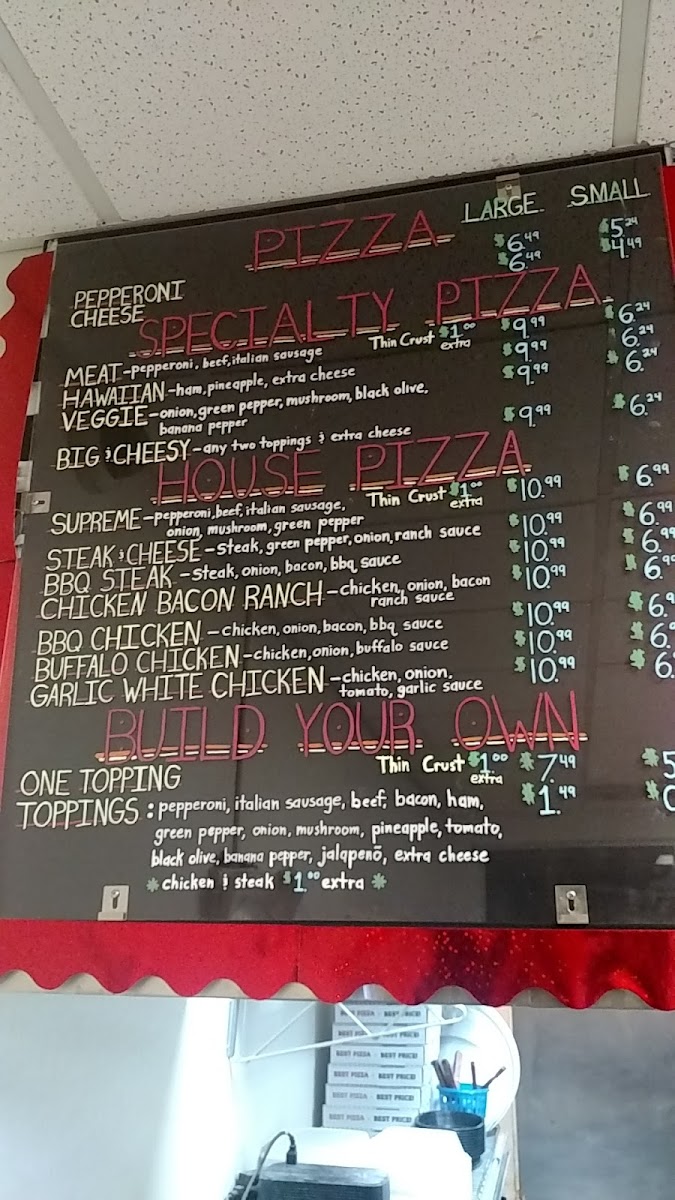 LARGE SMALL
PIZZA
PEPPERONI $6.49 $5.24
CHEESE $6.49 $4.49
SPECIALTY PIZZA
Thin Crust $1.00 extra
MEAT - pepperoni, beef, italian sausage $9.99 $6.24
HAWAIIAN - ham, pineapple, extra cheese $9.99 $6.24
VEGGIE - onion, green pepper, mushroom, black olive, $9.99 $6.24
banana pepper
BIG & CHEESY - any two toppings & extra cheese $9.99 $6.24
HOUSE PIZZA
Thin Crust $1.00 extra
SUPREME - pepperoni, beef, italian sausage, $10.99 $6.99
onion, mushroom, green pepper
STEAK & CHEESE - steak, green pepper, onion, ranch sauce $10.99 $6.99
BBQ STEAK - steak, onion, bacon, bbq sauce $10.99 $6.99
CHICKEN BACON RANCH - chicken, onion, bacon $10.99 $6.99
ranch sauce
BBQ CHICKEN - chicken, onion, bacon, bbq sauce $10.99 $6.9
BUFFALO CHICKEN - chicken, onion, buffalo sauce $10.99 $6.
GARLIC WHITE CHICKEN - chicken, onion, $10.99 $6.
tomato, garlic sauce
BUILD YOUR OWN
Thin Crust $1.00 extra
ONE TOPPING $7.49 $5
TOPPINGS: pepperoni, italian sausage, beef, bacon, ham, $1.49
green pepper, onion, mushroom, pineapple, tomato,
black olive, banana pepper, jalapenõ, extra cheese
* chicken & steak $1.00 extra *
BEST PIZZA BEST PRICE!
BEST PIZZA BEST PRICE!
BEST PIZZA BEST PRICE!
BEST PIZZA BEST PRICE!
BEST PIZZA BEST PRICE!
BEST PIZZA BEST PRICE!